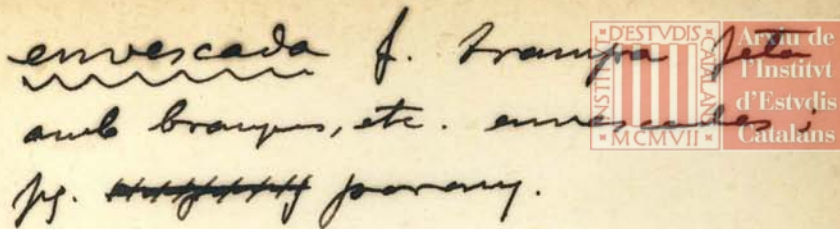 envescada f. trampa feta
amb branques, etc. envescades;
fg. parany.
INSTITVT D'ESTVDIS CATALANS MCMVII
Arxiu de
l'Institvt
d'Estvdis
Catalans